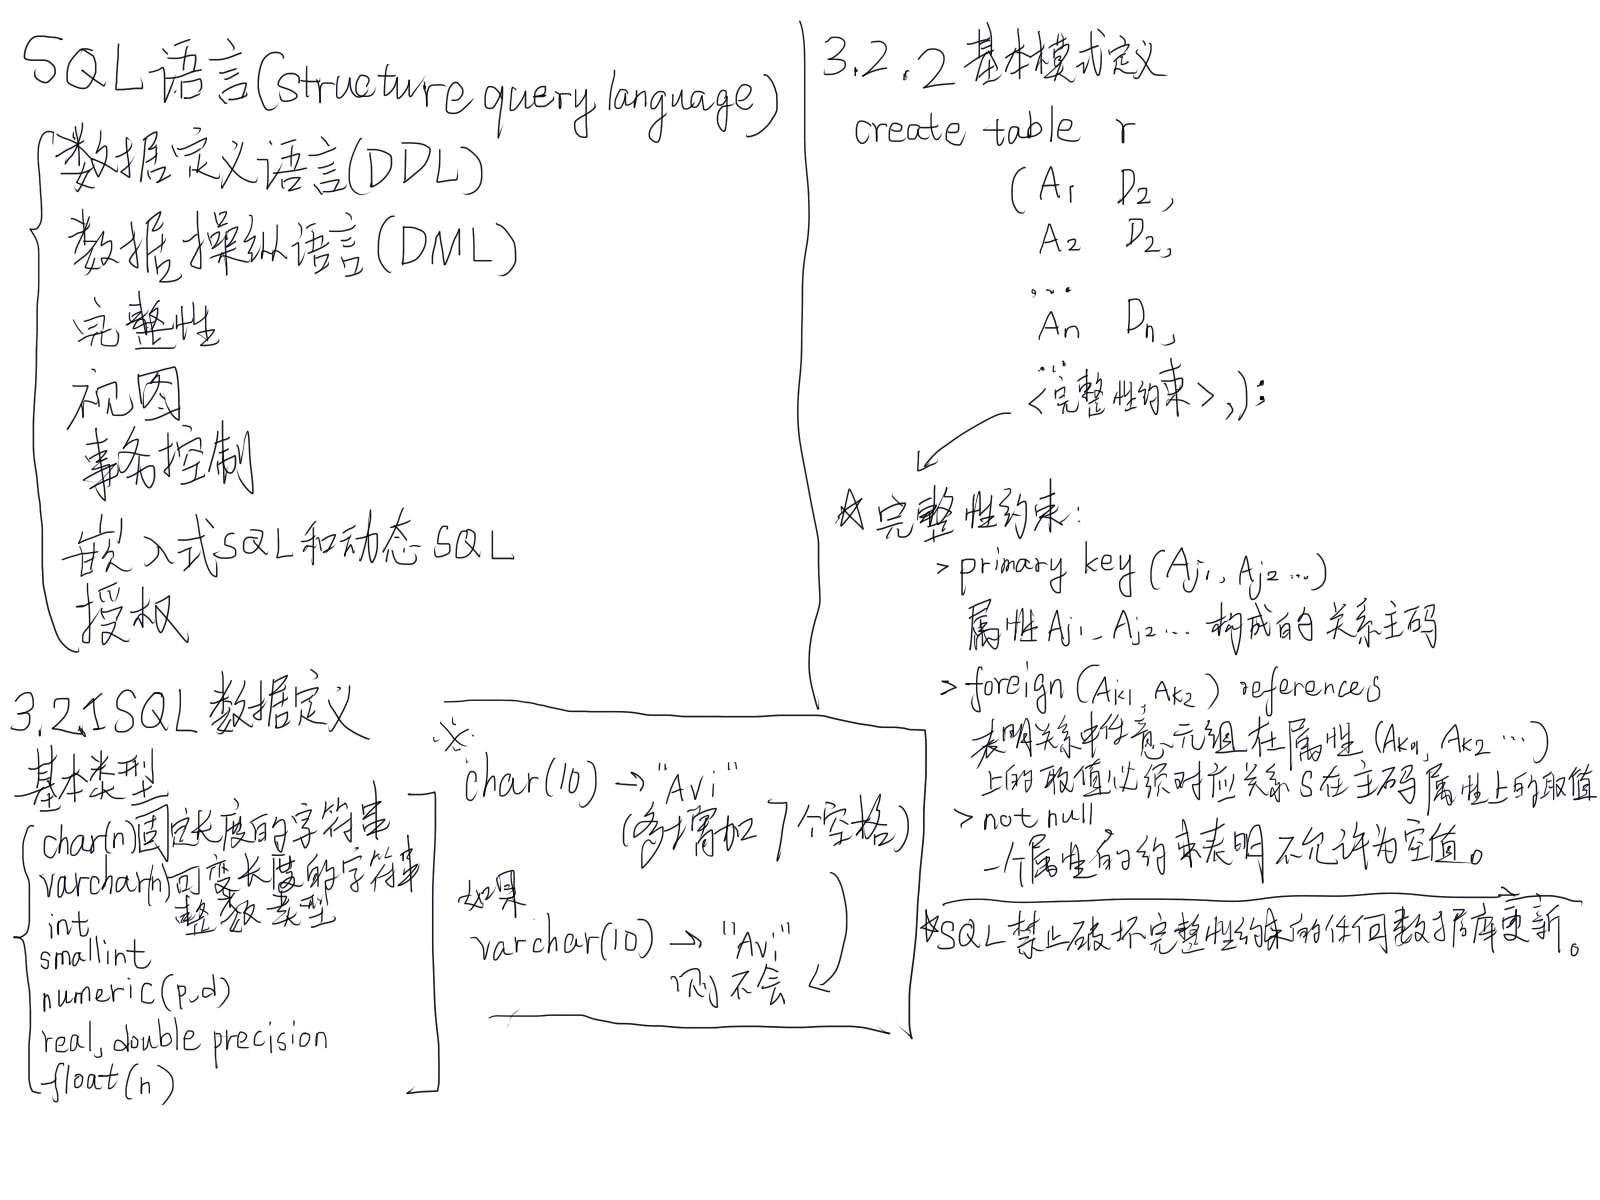 SQL语言(structure query language)
数据定义语言(DDL)
数据操纵语言(DML)
完整性
视图
事务控制
嵌入式SQL和动态SQL
授权
3.2.1 SQL数据定义
基本类型
char(n)固定长度的字符串
varchar(n)可变长度的字符串
int 整数类型
smallint
numeric(p,d)
real, double precision
float(n)
※
char(10) → "Avi"
(多增加7个空格)
如果
varchar(10) → "Avi"
则不会
3.2.2 基本模式定义
create table r
(A1 D2,
A2 D2,
...
An Dn,
...
<完整性约束>,);
☆完整性约束:
> primary key (Aj1, Aj2 ...)
属性Aj1, Aj2... 构成的关系主码
> foreign (Ak1, Ak2) references
表明关系中任意元组在属性(Ak1, Ak2 ...)
上的取值必须对应关系S在主码属性上的取值
> not null
一个属性的约束表明不允许为空值。
☆SQL禁止破坏完整性约束的任何数据库更新。